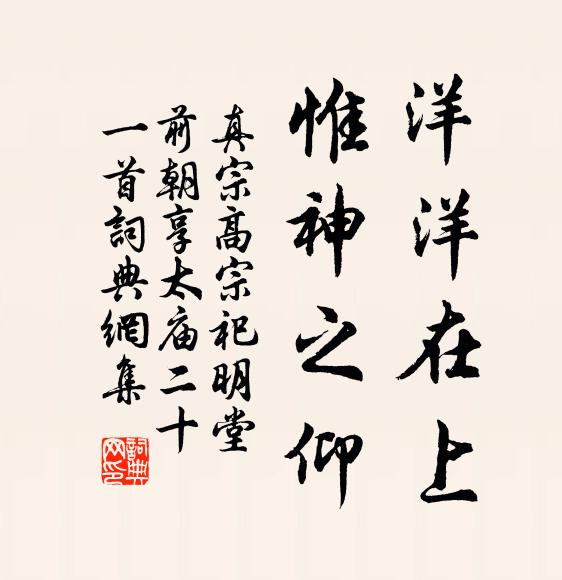 洋洋在上
惟神之仰
真宗高宗祀明堂
前朝享太庙二十
一首詞典網集
詞典
网印